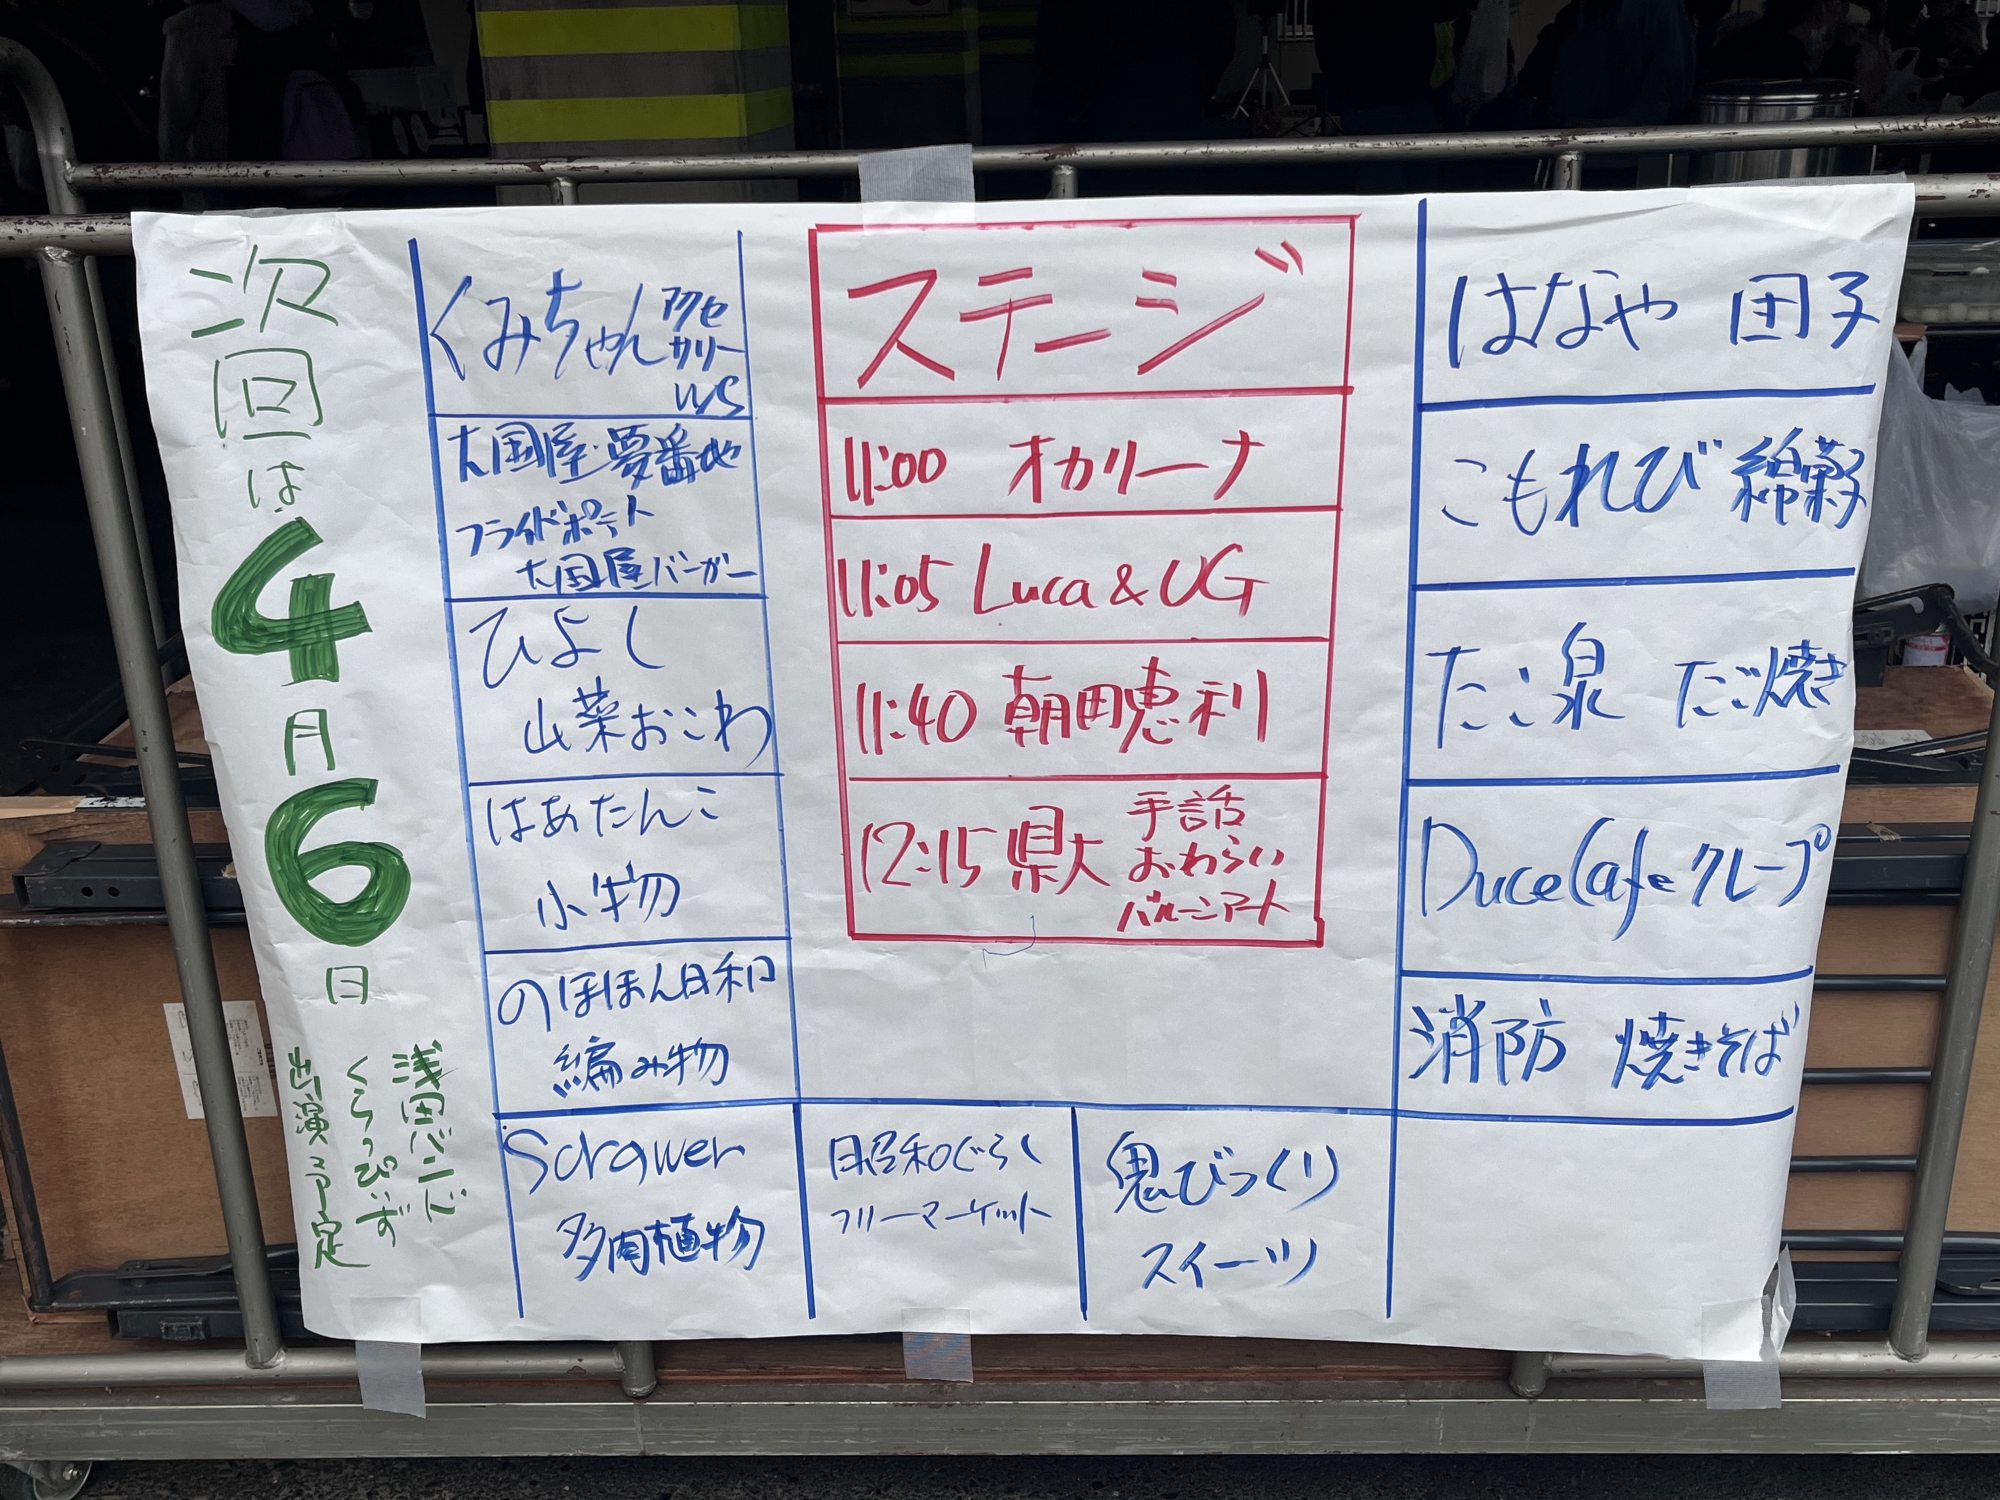 次回は
4月
6日
浅田バンド
くらっぴぃず
出演予定
くみちゃん アクセサリーWS
大国屋・夢番地
フライドポテト
大国屋バーガー
ひよし
山菜おこわ
はあたんこ
小物
のほほん日和
編み物
Scrawer
多肉植物
ステージ
11:00 オカリーナ
11:05 Luca & UG
11:40 朝田恵利
12:15 県大 手話
おわらい
バルーンアート
昭和ぐらし
フリーマーケット
鬼びっくり
スイーツ
はなや 団子
こもれび 綿菓子
たこ泉 たこ焼き
Duce Cafe クレープ
消防 焼きそば